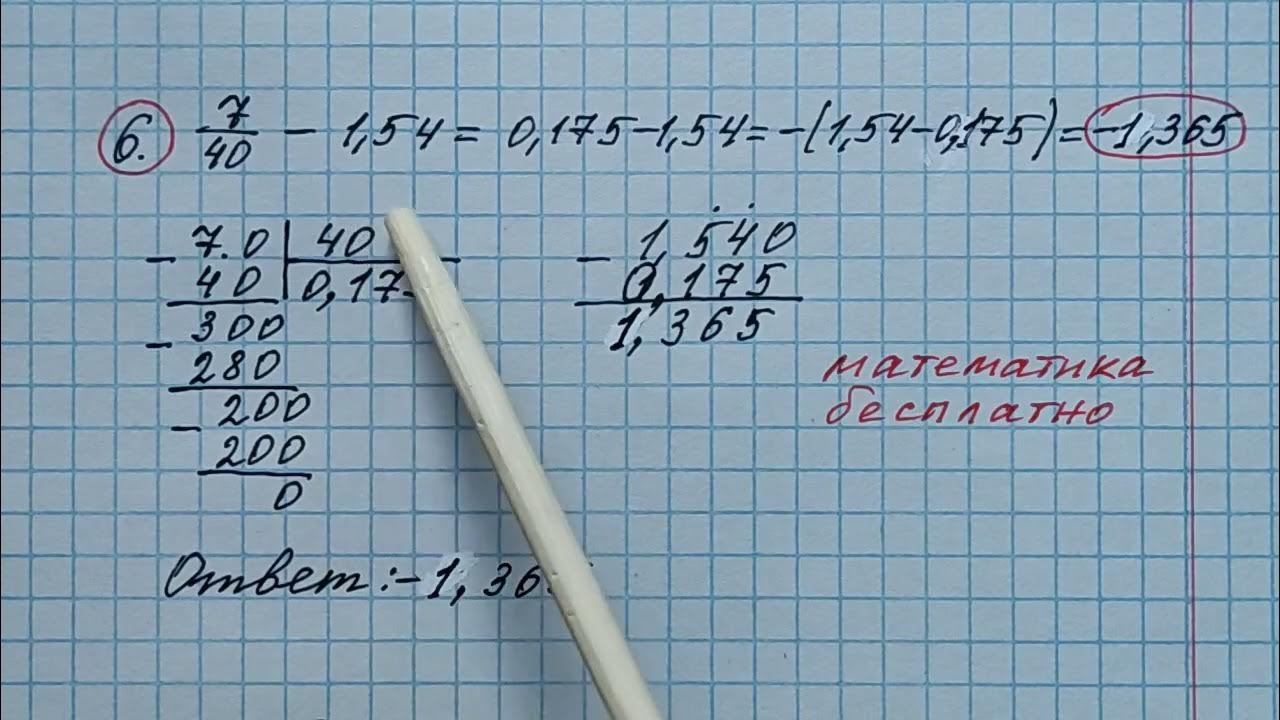 6. 7/40 - 1,54 = 0,175-1,54=-(1,54-0,175)=-1,365
- 7.0 | 40
40 | 0,17
- 300
280
- 200
200
0
- 1,540
0,175
1,365
математика
бесплатно
Ответ:-1,36